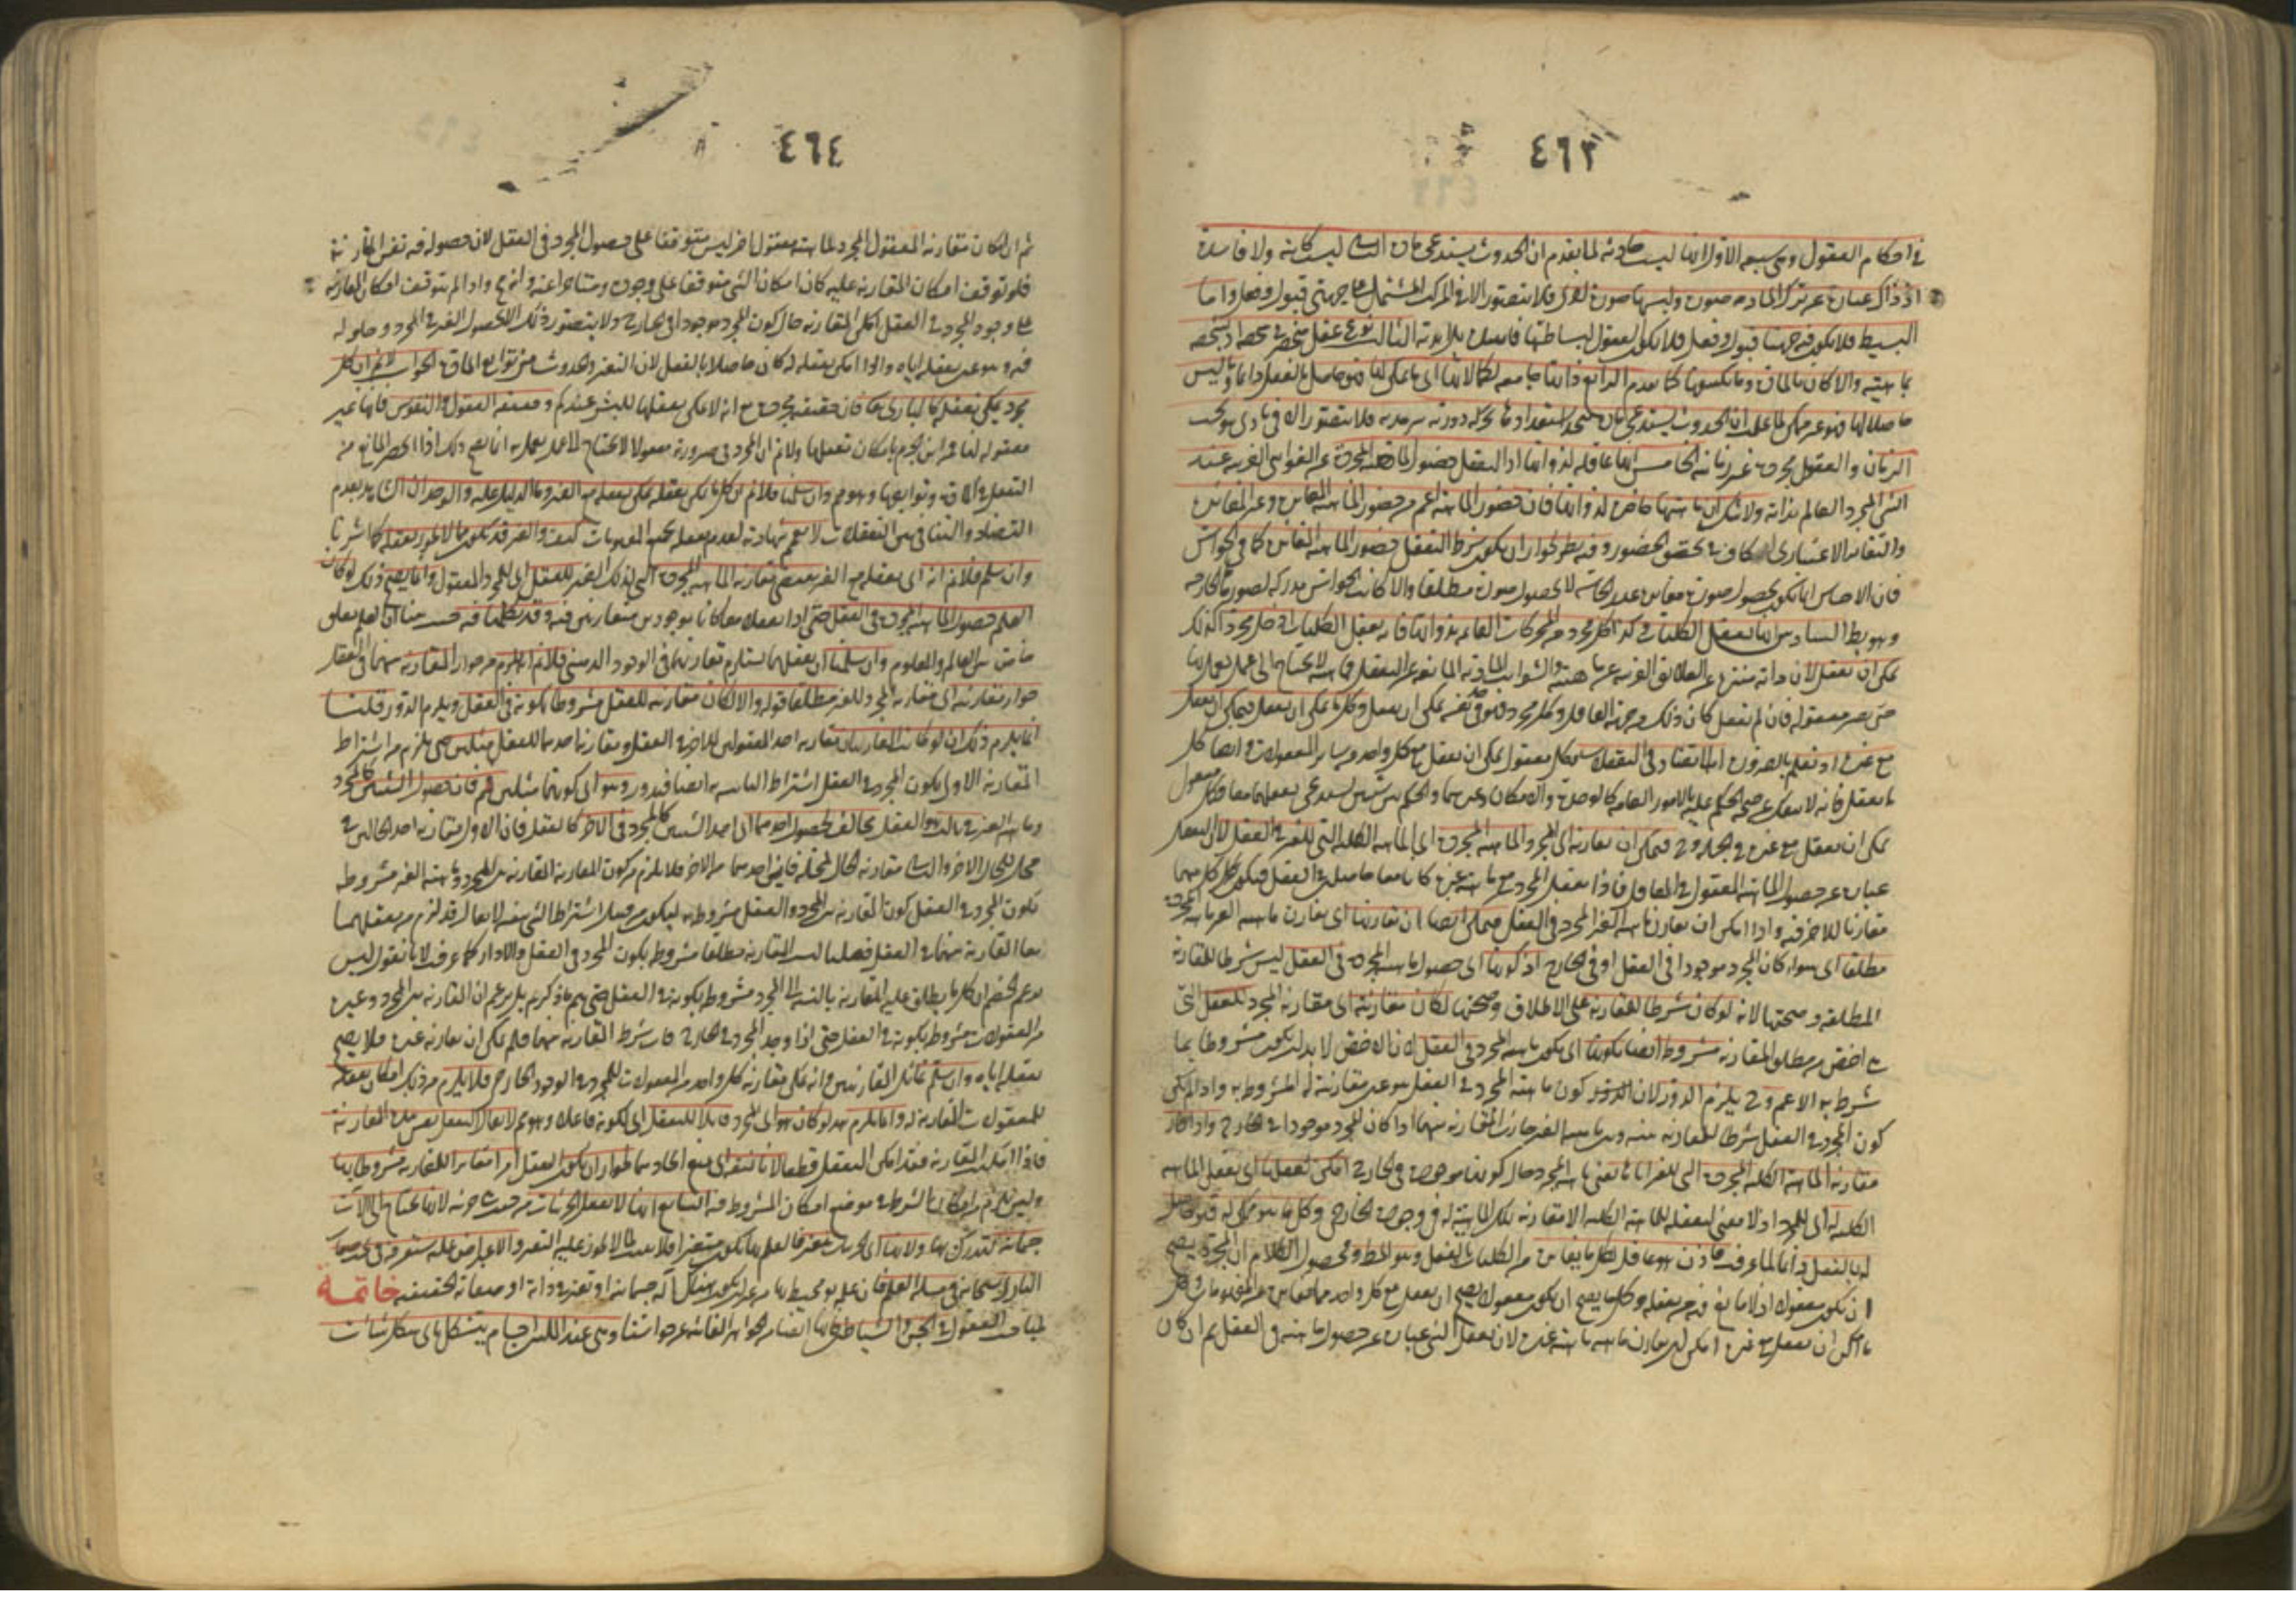 ٤٦٣
في احكام العقول وهي سبعة الاول انها ليست حادثة لما تقدم ان الحدوث يستدعي مادة الثاني ليست كائنة ولا فاسدة
اذ ذاك عبارة عن ترك المادة صورة ولبسها صورة اخرى فلا يتصور الا في المركب المشتمل على جهتي قبول وفعل واما
البسيط فلا يكون فيه جهتا قبول وفعل فلا يكون العقول لبساطتها فاسدة الثالث نوع كل عقل منحصر في شخصه اذ تشخصه
بماهيته والا لكان بالمادة وما يكتنفها كما تقدم الرابع ذاتها جامعة لكمالاتها اي ما يمكن لها فهو حاصل بالفعل دائما وما ليس
حاصلا لها فهو غير ممكن لما علمت ان الحدوث يستدعي مادة يتجدد استعدادها بحركة دورية سرمدية فلا يتصور الا في مادي هو تحت
الزمان والعقول مجردة غير زمانية الخامس انها عاقلة لذواتها اذ التعقل حضور الماهية المجردة عن الغواشي الغريبة عند
الشيء المجرد العالم بذاته ولا شك ان ماهيتها حاضرة لذواتها فان حضور الماهية اعم من حضور الماهية المغايرة وغير المغايرة
والتغاير الاعتباري كاف في تحقق الحضور وفيه نظر لجواز ان يكون شرط التعقل حضور الماهية المغايرة كما في الحواس
فان الاحساس انما يكون بحصول صورة مغايرة عند الحاسة لا بحصول صورة مطلقا والا كانت الحواس مدركة لصورها الخارجية
وهو باطل السادس انها تعقل الكليات وكذا كل مجرد من المجردات القائمة بذواتها فانه يعقل الكليات اذ كل مجرد كذلك
يمكن ان يعقل لان ذاته منزهة عن العلائق الغريبة عن ماهيته والشوائب المادية المانعة عن التعقل فماهيته لا تحتاج الى عمل يعمل بها
حتى تصير معقولة فان لم تعقل كان ذلك من جهة العاقل وكل مجرد فهو في نفسه يمكن ان يعقل وكل ما يمكن ان يعقل فيمكن ان يعقل
مع غيره اذ نعلم بالضرورة ان لا تضاد في التعقلات فكل معقول يمكن ان يعقل مع كل واحد من سائر المعقولات وايضا كل
ما يعقل فانه لا ينفك عن صحة الحكم عليه بالامور العامة كالوحدة والامكان وغيرهما والحكم بين شيئين يستدعي تعقلهما معا فكل معقول
يمكن ان يعقل مع غيره في الجملة وح فيمكن ان يقارنه اي المجرد الماهية المجردة اي الماهية الكلية التي للغير في العقل لان التعقل
عبارة عن حصول الماهية المعقولة في العاقل فاذا تعقل المجرد مع ماهية غيره كانا معا حاصلين في العقل فيكون كل منهما
مقارنا للاخر فيه واذا امكن ان يقارن ماهية الغير المجرد في العقل فيمكن ايضا ان يقارنها اي يقارن ماهية الغير ماهية المجرد
مطلقا اي سواء كان المجرد موجودا في العقل او في الخارج اذ كونها اي حصول ماهية المجردة في العقل ليس شرطا للمقارنة
المطلقة وصحتها لانه لو كان شرطا للمقارنة على الاطلاق وصحتها لكان مقارنته اي مقارنة المجرد للعقل التي
هي اخص من مطلق المقارنة مشروطة ايضا بكونها اي بكون ماهية المجرد في العقل لان الاخص لا بد ان يكون مشروطا بما
شرط به الاعم وح يلزم الدور لان كون ماهية المجرد في العقل هو عين مقارنته له المشروط به واذا لم يكن
كون المجرد في العقل شرطا للمقارنة بينه وبين ماهية الغير جازت المقارنة بينهما اذا كان المجرد موجودا في الخارج واذا جاز
مقارنة الماهية الكلية المجردة التي للغير اياها يعني ماهية المجرد حال كونها موجودة في الخارج امكن تعقلها اي تعقل الماهية
الكلية له اي للمجرد اذ لا معنى لتعقله للماهية الكلية الا مقارنة تلك الماهية له في وجوده الخارجي وكل ما هو ممكن له فهو حاصل
له بالفعل دائما لما عرفت فاذن هو عاقل لكل ما يغايره من الكليات بالفعل وهو المط ومحصول الكلام ان المجرد يصح
ان يكون معقولا اذ لا مانع فيه من تعقله وكل ما يصح ان يكون معقولا يصح ان يعقل مع كل واحد مما يغايره من المفهومات وكل
ما امكن ان يعقل مع غيره امكن له ان يقارن ماهيته ماهية غيره لان تعقل الشيء عبارة عن حصول ماهيته في العقل ثم ان كان
٤٦٤
ثم ان امكان مقارنة المعقول المجرد لماهية معقول اخر ليس متوقفا على حصول المجرد في العقل لان حصوله فيه نفس المقارنة
فلو توقف امكان المقارنة عليه كان امكان الشيء متوقفا على وجوده ومتأخرا عنه وانه مح واذا لم يتوقف امكان المقارنة
على وجود المجرد في العقل امكن المقارنة حال كون المجرد موجودا في الخارج ولا يتصور ذلك الا بحصول الغير في المجرد وحلوله
فيه وهو عين تعقله اياه واذا امكن تعقله له كان حاصلا بالفعل لان التغير والحدوث من توابع المادة الجواب لا نم ان كل
مجرد يمكن تعقله كالباري تعالى فان حقيقته مجردة مع انه لا يمكن تعقلها للبشر عندكم وحقيقة العقول والنفوس فانها غير
معقولة لنا فمن اين الجزم بامكان تعقلها ولا نم ان المجرد في صيرورته معقولا لا يحتاج الا عمل يعمل به انما يصح ذلك اذا انحصر المانع من
التعقل في المادة وتوابعها وهو مم وان سلمنا فلا نم ان كل ما يمكن تعقله يمكن تعقله مع الغير وما الدليل عليه والوجدان الشاهد بعدم
التضاد والتنافي بين التعقلات لا يعم شهادته لعدم تعقله جميع المفهومات كيف والغير قد يكون مما لا يجوز تعقله كما اشرنا
وان سلم فلا نم انه اي تعقله مع الغير يقتضي مقارنة الماهية المجردة التي لذلك الغير للعقل اي للمجرد المعقول وانما يصح ذلك لو كان
العلم حصول الماهية المجردة في العقل حتى اذا تعقلا معا كانا موجودين متقارنين فيه وقد تكلمنا فيه حيث بينا ان العلم تعلق
خاص بين العالم والمعلوم وان سلمنا ان تعقلهما يستلزم تقارنهما في الوجود الذهني فلا نم انه يلزم من جواز المقارنة بينهما في العقل
جواز مقارنته اي مقارنة المجرد للغير مطلقا قوله والا لكان مقارنته للعقل مشروطا بكونه في العقل ويلزم الدور قلنا
انما يلزم ذلك ان لو كانت المقارنتان مقارنة احد المعقولين للاخر في العقل ومقارنة احدهما للعقل مثلين حتى يلزم من اشتراط
المقارنة الاولى بكون المجرد في العقل اشتراط الثانية به ايضا فيدور وهو اي كونهما مثلين مم فان حصول الشيئين كالمجرد
وماهية الغير في ثالث وهو العقل يخالف لحصول احدهما اي احد الشيئين كالمجرد في الاخر كالعقل فان الاول مقارنة احد الحالين في
محل للحال الاخر والثاني مقارنة الحال لمحله فاين احدهما من الاخر فلا يلزم من كون المقارنة بين المجرد وماهية الغير مشروطة
بكون المجرد في العقل كون المقارنة بين المجرد والعقل مشروطة به ليكون من قبيل اشتراط الشيء بنفسه لا يقال قد لزم من تعقلهما
معا المقارنة بينهما في العقل فعلمنا ليست المقارنة مطلقا مشروطة بكون المجرد في العقل والا دار كما عرفت لانا نقول ليس
يزعم الخصم ان كل ما يطلق عليه المقارنة بالنسبة الى المجرد مشروط بكونه في العقل حتى يتم ما ذكرتم بل يزعم ان المقارنة بين المجرد وغيره
من المعقولات مشروطة بكونه في العقل حتى اذا وجد المجرد في الخارج فات شرط المقارنة بينهما فلم يمكن ان يقارنه غيره فلا يصح
تعقله اياه وان سلم تماثل المقارنتين وانه يمكن مقارنة كل واحد من المعقولات للمجرد في الوجود الخارجي فلا يلزم من ذلك امكان تعقله
للمعقولات المقارنة له وانما يلزم هذا لو كان هو اي المجرد قابلا للتعقل اي لكونه فاعلا وهو مم لا يقال التعقل نفس هذه المقارنة
فاذا امكنت المقارنة فقد امكن التعقل قطعا لانا نقول نمنع اتحادهما لجواز ان يكون التعقل امرا مغايرا للمقارنة مشروطا بها
وليس يلزم من امكان الشرط في موضع امكان المشروط فيه السابع انها لا تعقل الجزئيات من حيث هي جزئية لانها تحتاج الى الات
جسمانية تدرك بها ولانها اي الجزئيات تتغير فالعلم بها يكون متغيرا فلا يثبت لما لا يجوز عليه التغير والاعتراض عليه ستعرفه في بحث صفات
الباري سبحانه في مسئلة العلم فان علمه محيط بها من غير ان يكون هناك آلة جسمانية او تغير في ذاته او صفاته الحقيقية خاتمة
لمباحث العقول في الجن والشياطين فانها ايضا من الجواهر الغائبة عن حواسنا وهي عند المليين اجسام يتشكل باي شكل شاءت